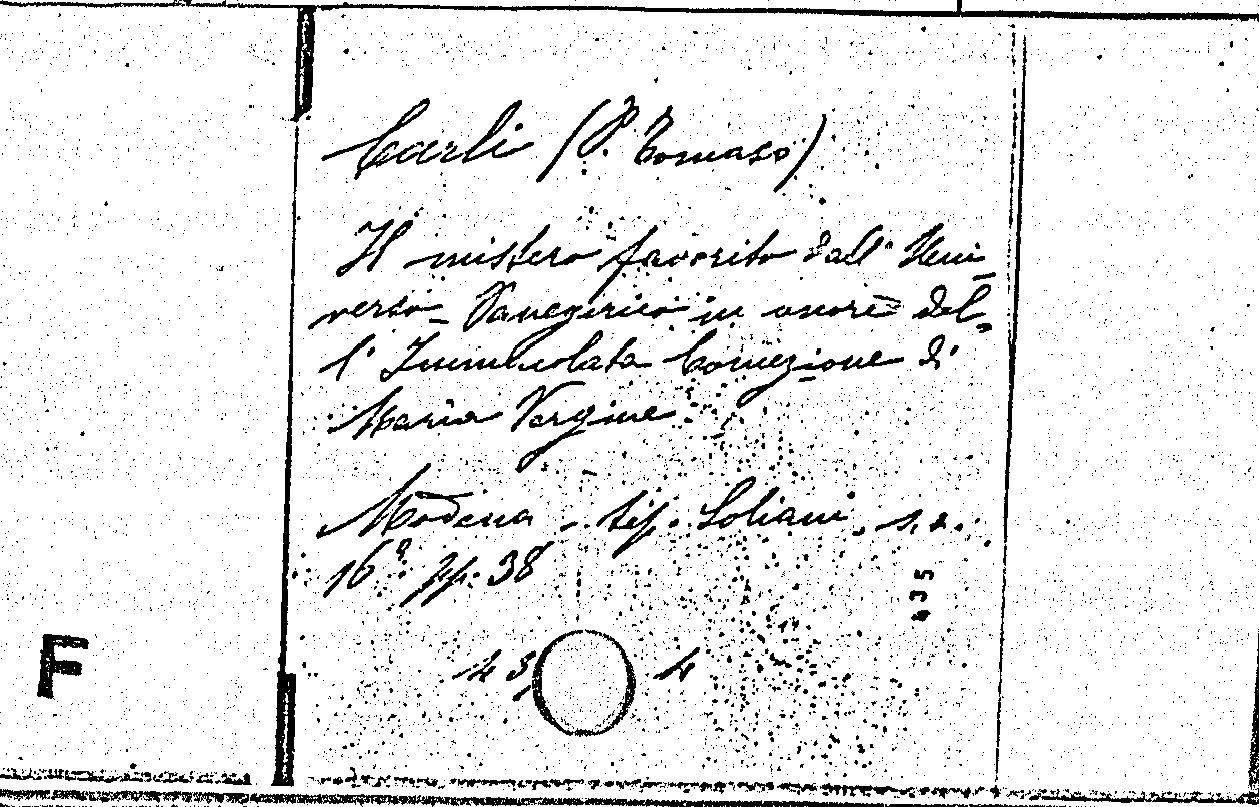 Carli (P. Tomaso)
Il mistero favorito dall' Uni=
verso - Panegirico in onore del=
l' Immacolata Concezione di
Maria Vergine
Modena - tip. Soliani, s. a.
16º pp. 38
435
F